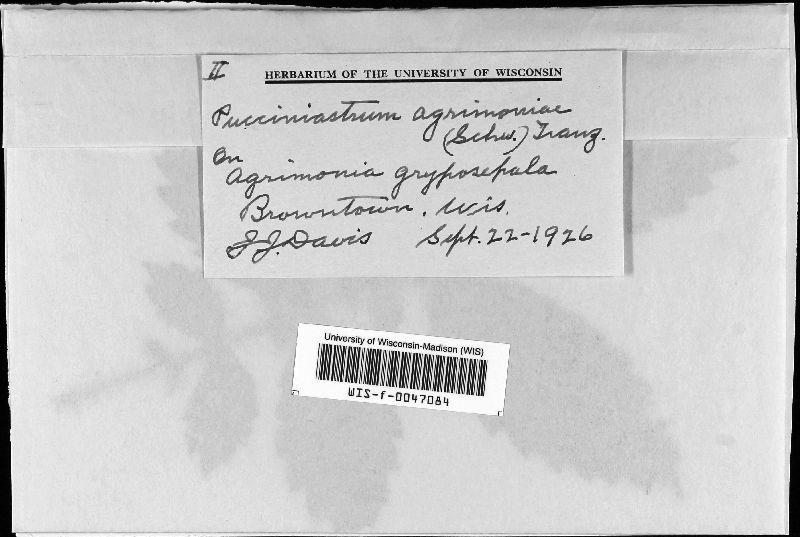 II
HERBARIUM OF THE UNIVERSITY OF WISCONSIN
Pucciniastrum agrimoniae
(Schw.) Tranz.
On
Agrimonia gryposepala
Browntown, Wis.
J.J. Davis Sept. 22-1926
University of Wisconsin-Madison (WIS)
WIS-f-0047084